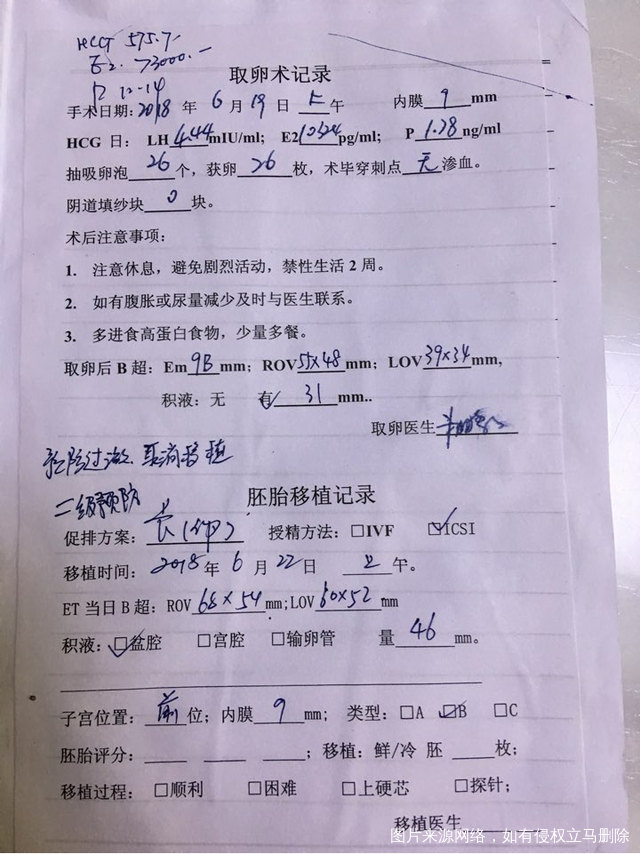 HCG 575.7
E2 >3000.
P 12.14
取卵术记录
手术日期:2018 年 6 月 19 日 上午 内膜 9 mm
HCG 日： LH 4.44 mIU/ml; E2 pg/ml; P 1.28 ng/ml
抽吸卵泡 26 个，获卵 26 枚，术毕穿刺点 无 渗血。
阴道填纱块 0 块。
术后注意事项：
1. 注意休息，避免剧烈活动，禁性生活 2 周。
2. 如有腹胀或尿量减少及时与医生联系。
3. 多进食高蛋白食物，少量多餐。
取卵后 B 超：Em 9B mm; ROV 55×48 mm; LOV 39×34 mm,
积液：无 有 31 mm..
取卵医生
取消移植
二级预防
胚胎移植记录
促排方案： 长 授精方法：□IVF ☑ICSI
移植时间： 2018 年 6 月 22 日 上 午。
ET 当日 B 超：ROV 68×54 mm;LOV 60×52 mm
积液：☑盆腔 □宫腔 □输卵管 量 46 mm。
子宫位置： 前 位；内膜 9 mm; 类型：□A ☑B □C
胚胎评分： ；移植：鲜/冷 胚 枚；
移植过程：□顺利 □困难 □上硬芯 □探针；
移植医生
图片来源网络，如有侵权立马删除